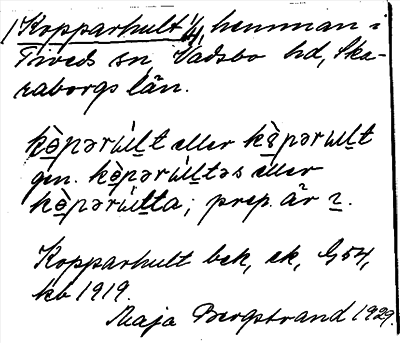 Kopparhult 1/4, hemman i
Tiveds sn, Vadsbo hd, Ska-
raborgs län.
kòpərùḷt eller kòpəruḷt
gen. kòpərùḷtəs eller
kòpərùḷta; prep. är ɩ.
Kopparhult bek, ek, G 54,
kb 1919.
Maja Bergstrand 1929.